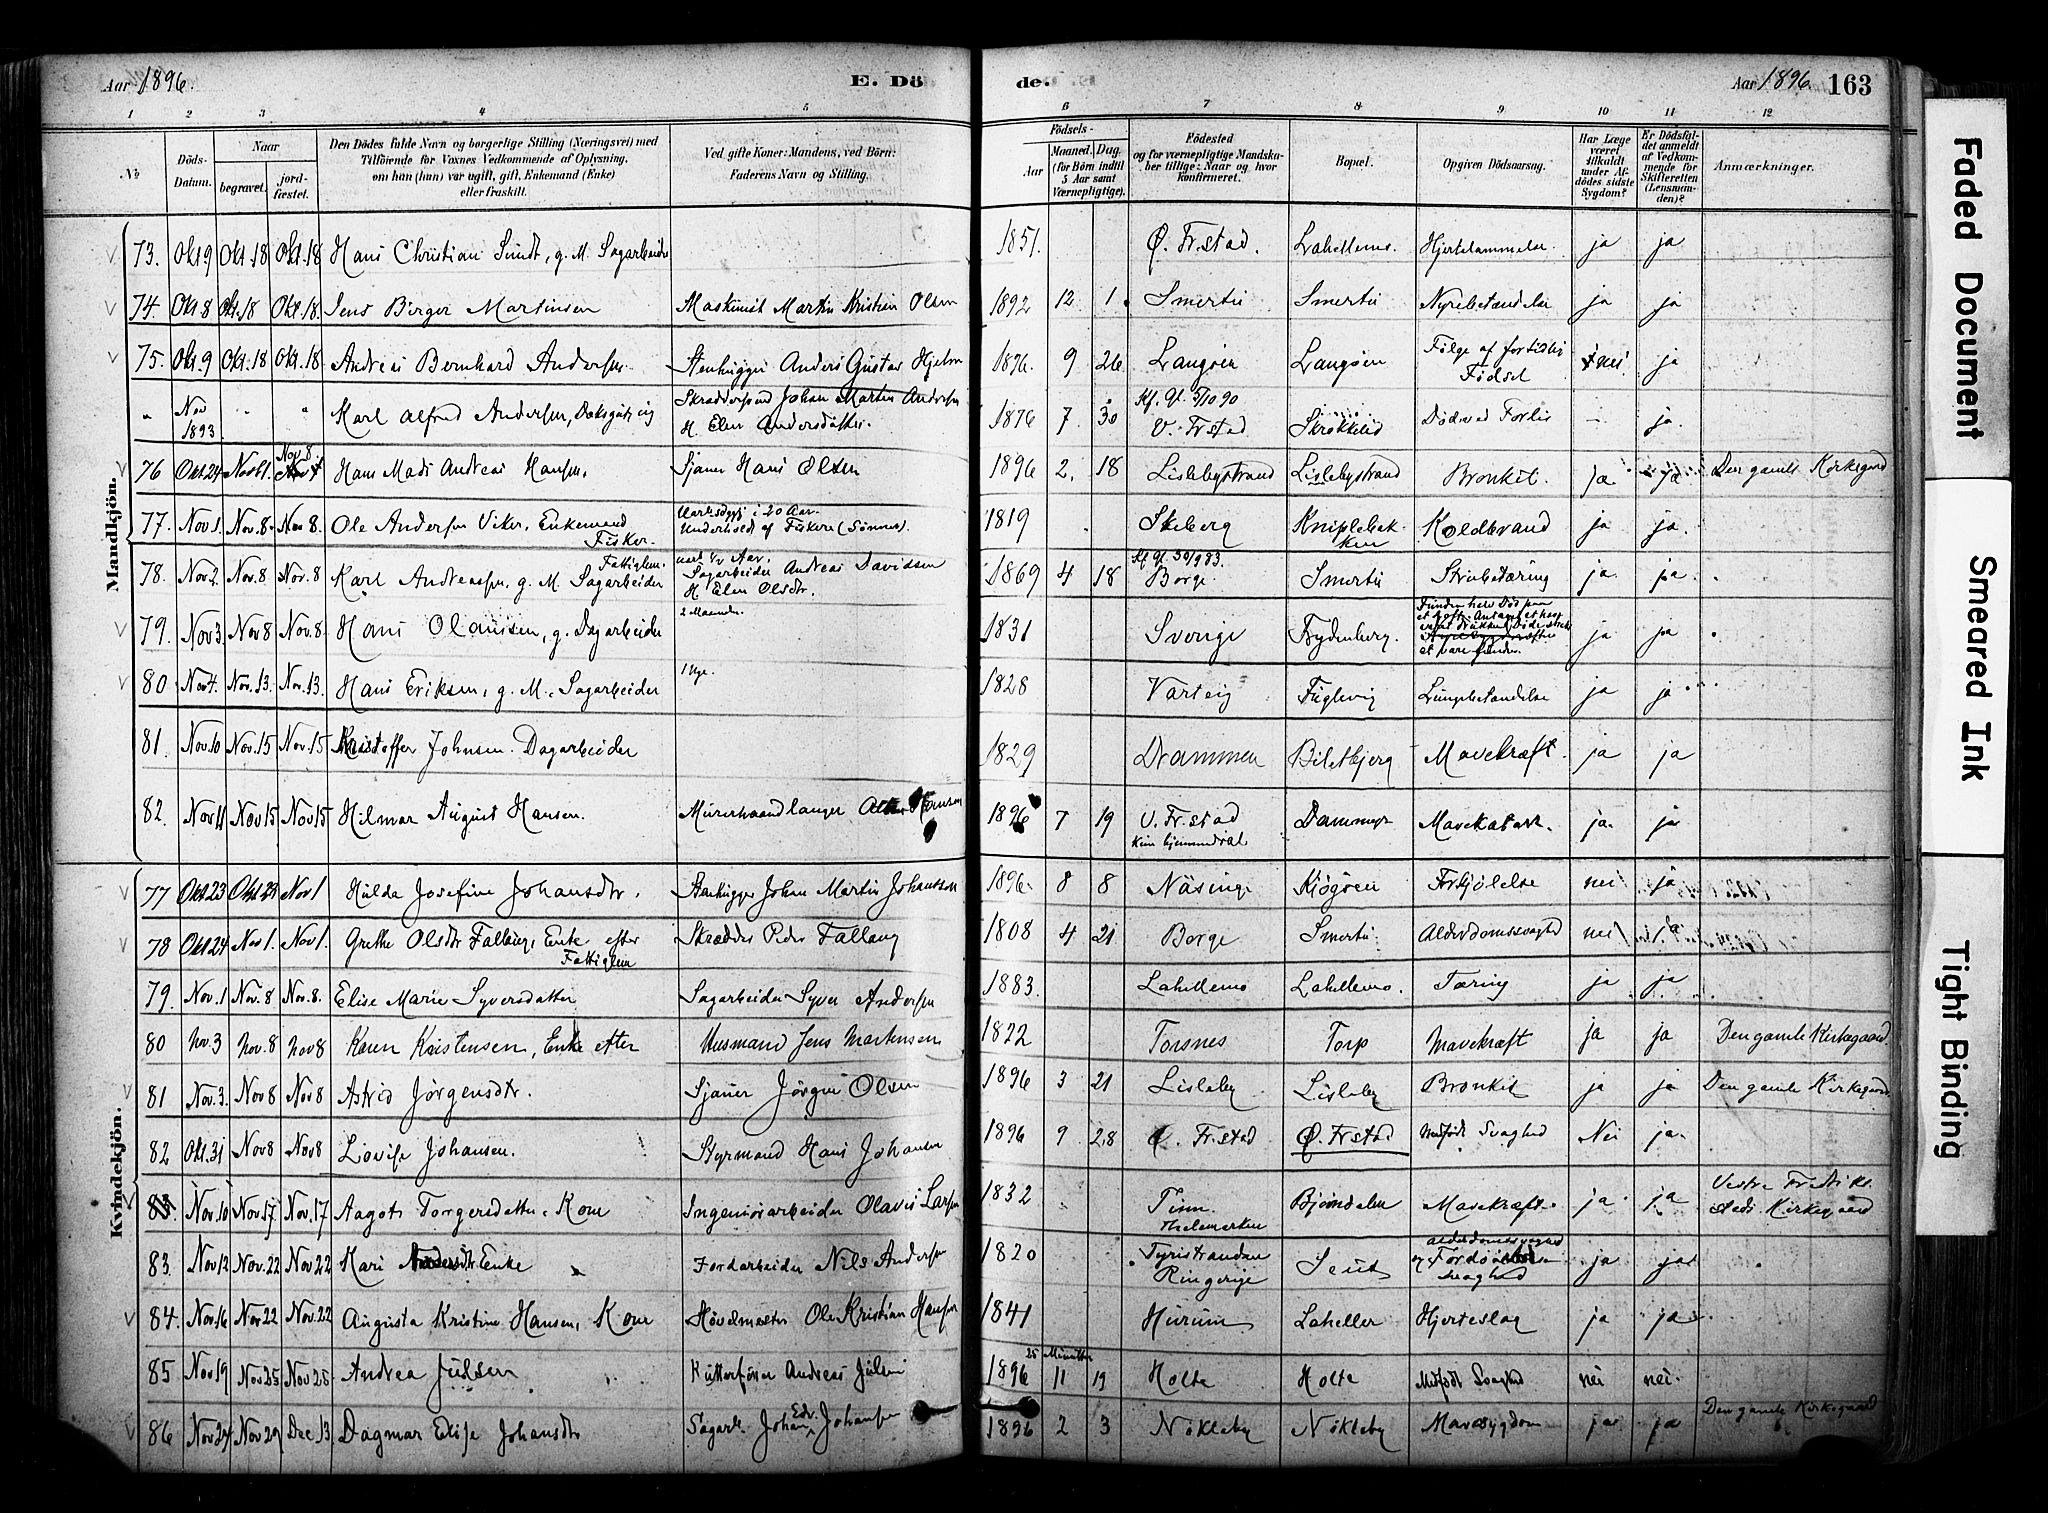 Aar 1896.
E. Dö
de.
Aar 1896
163
1 2 3 4 5 6 7 8 9 10 11 12
No
Döds-Datum.
Naar
begravet.
jord-fæstet.
Den Dödes fulde Navn og borgerlige Stilling (Næringsvei) med
Tilföiende for Voxnes Vedkommende af Oplysning,
om han (hun) var ugift, gift, Enkemand (Enke)
eller fraskilt.
Ved gifte Koner: Mandens, ved Börn:
Faderens Navn og Stilling.
Födsels-
Aar
Maaned. Dag
(for Börn indtil
5 Aar samt
Værnepligtige).
Födested
og for værnepligtige Mandska-
ber tillige: Naar og hvor
konfirmeret.
Bopæl.
Opgiven Dödsaarsag.
Har Læge
været
tilkaldt
under Af-
dödes sidste
Sygdom?
Er Dödsfal-
det anmeldt
af Vedkom-
mende for
Skifteretten
(Lensman-
den)?
Anmærkninger.
Mandkjön.
73. Okt 9 Okt. 18 Okt. 18 Hans Christian Sundt, g. M. Sagarbeider 1851. Ø. Fr.stad. Lahellemo. Hjertelammelse ja ja
74. Okt. 8 Okt. 18 Okt. 18. Jens Birger Martinsen Maskinist Martin Kristian Olsen 1892 12 1. Smertu Smertu Nyrebetændelse ja ja
75. Okt. 9 Okt. 18 Okt. 18 Andreas Bernhard Andersen Stenhugger Anders Gustav Hjelm 1896 9 26 Langøen Langøen Følge af fortidlig Fødsel nei ja
" Nov 1893 " " Karl Alfred Andersen, Dæksgut, ug Skræddersvend Johan Martin Andersen
H. Elen Andersdatter. 1876 7 30 V. Frstad Døde ved Forlis — ja.
Skrøkkelid
76 Okt 24 Nov 1. Nov 8. Hans Mads Andreas Hansen, Sjauer Hans Olsen 1896 2. 18 Lislebystrand Lislebystrand Bronkit. Ja ja Den gamle Kirkegaard
77. Nov 1. Nov. 8. Nov 8. Ole Andersen Viker, Enkemand Fisker. Værksbygd i 20 Aar.
Underhold af Fiskeri (Sønnen). 1819 Skeberg Kniplebakken Koldbrand ja ja.
78. Nov 2. Nov. 8 Nov. 8 Karl Andreassen, g. M. Sagarbeider Fattiglem. Sagarbeider Andreas Davidsen
H Elen Olsdtr. 1869 4 18 Borge Smertu Strubetæring ja ja.
79. Nov 3. Nov 8 Nov. 8. Hans Olaussen, g. Dagarbeider 2 Maaneder 1831 Sverige Frydenberg. ja ja
80 Nov 4. Nov. 13. Nov. 13. Hans Eriksen, g. M. Sagarbeider 1 Uge. 1828 Varteig Fuglevig Lungebetændelse ja ja
81. Nov. 10 Nov. 15 Nov. 15 Kristoffer Johnsen. Dagarbeider 1829 Drammen Biletbjerg Mavekræft. ja ja
82. Nov 11 Nov 15 Nov 15 Hilmar August Hansen. Murerhaandlanger Hansen 1896 7 19 V. Fr.stad Dammyr Mavekatarh. ja. ja
Kvindekjön.
77 Okt. 23 Okt 29 Nov 1 Hulda Josefine Johansdtr. Stenhugger Johan Martin Johansson 1896. 8 8 Näsinge Kjøgøen Forkjølelse nei ja
78 Okt 24 Nov 1. Nov 1. Grethe Olsdtr Fallang, Enke efter Fattiglem Skrædder Peder Fallang 1808 4 21 Borge Smertu Alderdomssvaghed nei ja
79. Nov. 1 Nov. 8 Nov. 8. Elise Marie Syversdatter Sagarbeider Syver Andersen 1883. Lahellemo Lahellemo. Tæring ja ja
80 Nov. 3 Nov. 8 Nov 8 Karen Kristensen, Enke efter Husmand Jens Martinsen 1822 Torsnes Torp Mavekræft ja ja Den gamle Kirkegaard.
81 Nov. 3. Nov 8 Nov 8 Astrid Jørgensdtr. Sjauer Jørgen Olsen 1896 3 21 Lisleby Lisleby Bronkit ja ja Den gamle Kirkegaard
82 Okt. 31 Nov 8 Nov 8 Lovise Johansen. Styrmand Hans Johansen 1896 9 28 Ø. Fr.stad Ø. Frstad Medfødt Svaghed Nei ja.
83. Nov. 10 Nov. 17 Nov. 17 Aagot Torgersdatter, Kone Ingeniørarbeider Olavis Larsen 1832 Tinn. Thelemarken Bjørndalen Mavekræft. ja ja Vestre Fredriksstads Kirkegaard
83. Nov. 12 Nov. 22 Nov 22 Kari Andersdtr Enke Jordarbeider Nils Andersen 1820 Tyristranden Ringerige Seut Alderdomssvaghed og svaghed ja ja
84. Nov. 16 Nov 22 Nov. 22 Augusta Kristine Hansen, Kone Høvelmester Ole Kristian Hansen 1841 Hurum Laheller Hjerteslag ja ja
85 Nov 19 Nov 25 Nov 25 Andrea Julsen Kutterfører Andreas Julsen 1896 25 Minutter 11 19 Holte Holte Medfødt Svaghed nei nei.
86 Nov 24 Nov 29 Dec. 13 Dagmar Elise Johansdtr Sagarb. Johan Edv. Johansen 1896 2 3 Nøkleby Nøkleby Mavesygdom ja ja Den gamle Kirkegaard
Faded Document
Smeared Ink
Tight Binding